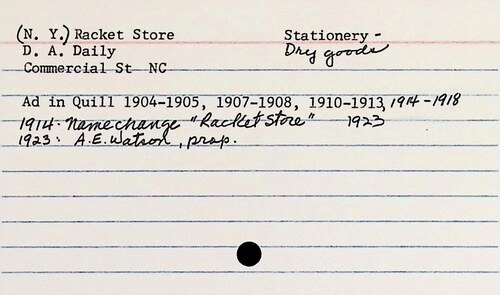 (N. Y.) Racket Store Stationery -
D. A. Daily Dry goods
Commercial St NC
Ad in Quill 1904-1905, 1907-1908, 1910-1913, 1914-1918
1914. Name change "Racket Store" 1923
1923: A.E. Watson, prop.